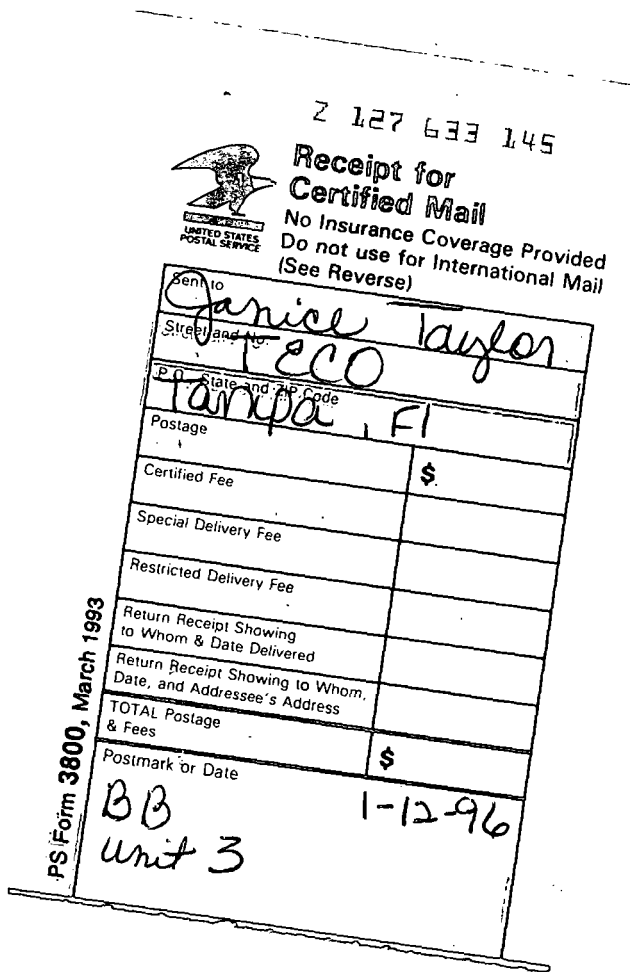 Z 127 633 145
Receipt for
Certified Mail
No Insurance Coverage Provided
Do not use for International Mail
(See Reverse)
UNITED STATES
POSTAL SERVICE
Sent to
Janice Taylor
Street and No.
TECO
P.O., State and ZIP Code
Tampa, Fl
Postage
$
Certified Fee
Special Delivery Fee
Restricted Delivery Fee
Return Receipt Showing
to Whom & Date Delivered
Return Receipt Showing to Whom,
Date, and Addressee's Address
TOTAL Postage
& Fees
$
Postmark or Date
BB 1-12-96
Unit 3
PS Form 3800, March 1993